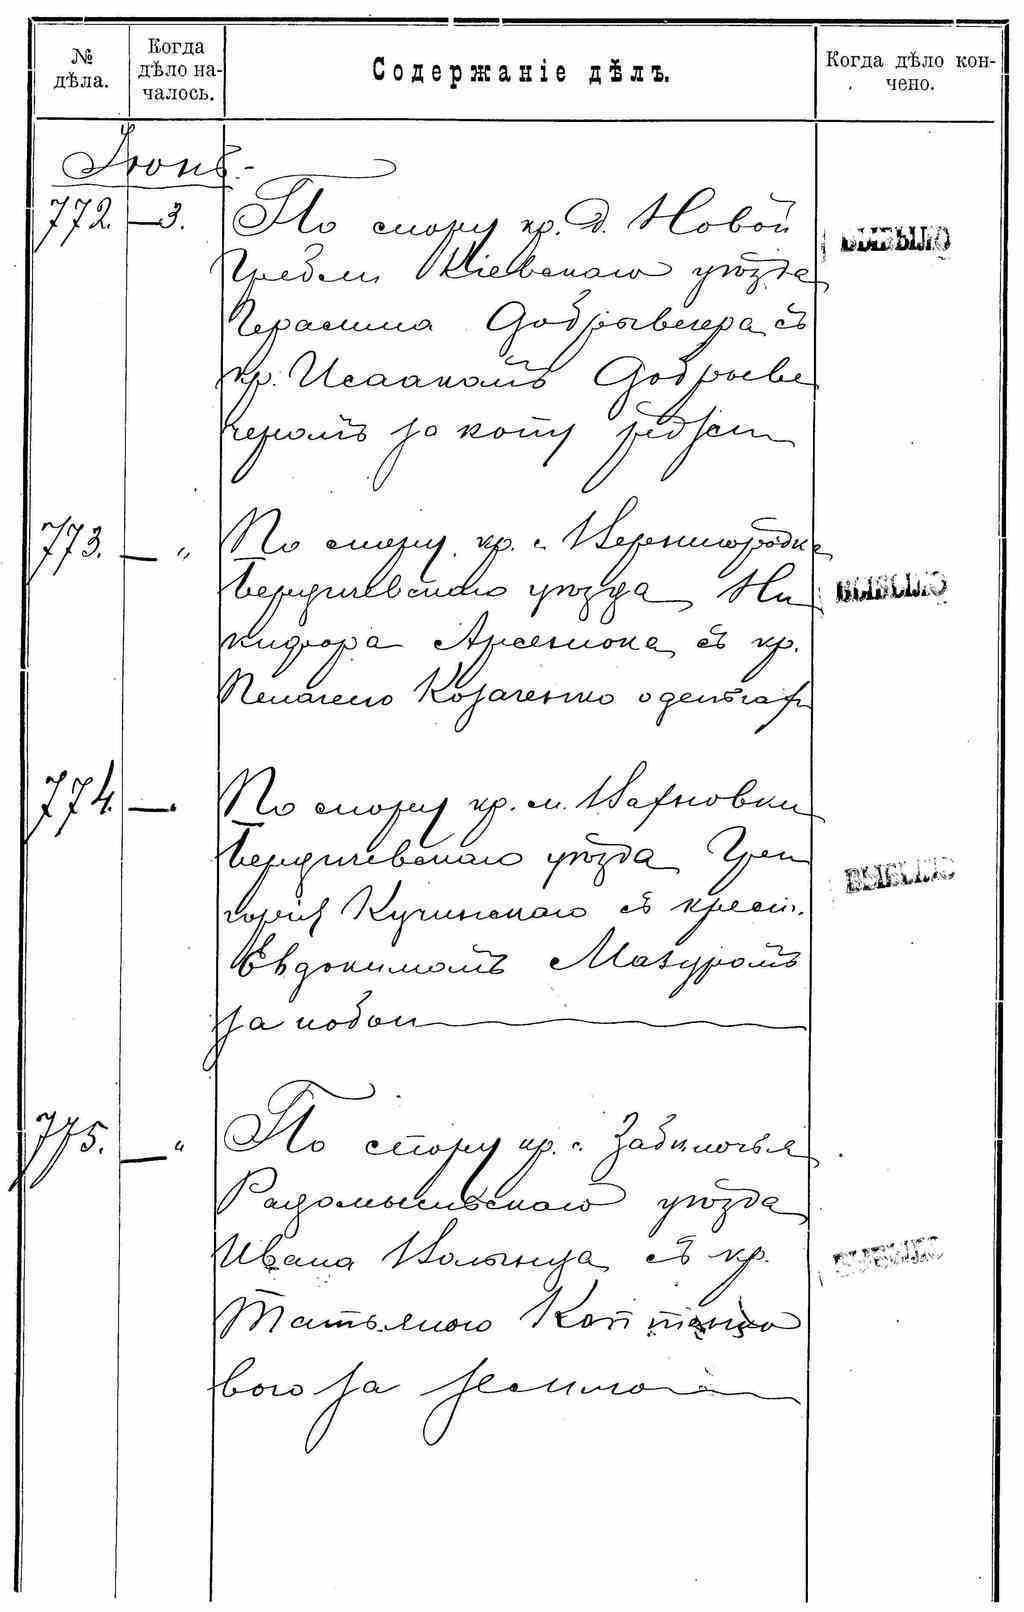 № дѣла.
Когда дѣло на-
чалось.
Содержаніе дѣлъ.
Когда дѣло кон-
чено.
Іюнь.
772. — 3. По спору кр. д. Новой
Гребли Кіевскаго уѣзда
Герасима Добрывечера съ
кр. Исаакомъ Добрыве
черомъ за копу
ВЫБЫЛО
773. — " По спору кр. с. Вернигородка
Бердичевскаго уѣзда Ни
кифора Арсенюка съ кр.
Пелагею Козаченко о
ВЫБЫЛО
774. — " По спору кр. м. Вахновки
Бердичевскаго уѣзда Гри
горія Кучинскаго съ крест.
Евдокимомъ Мазуромъ
за побои
ВЫБЫЛО
775. — " По спору кр. с. Забилочья
Радомысльскаго уѣзда
Ивана Волынца съ кр.
Татьяною
вою за землю
ВЫБЫЛО